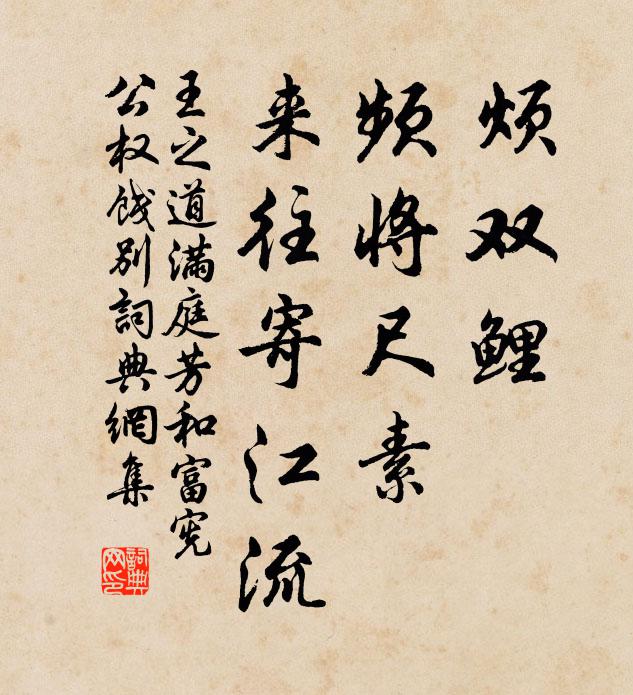 烦双鲤
频将尺素
来往寄江流
王之道满庭芳和富宪
公权饯别詞典網集
詞典
网印